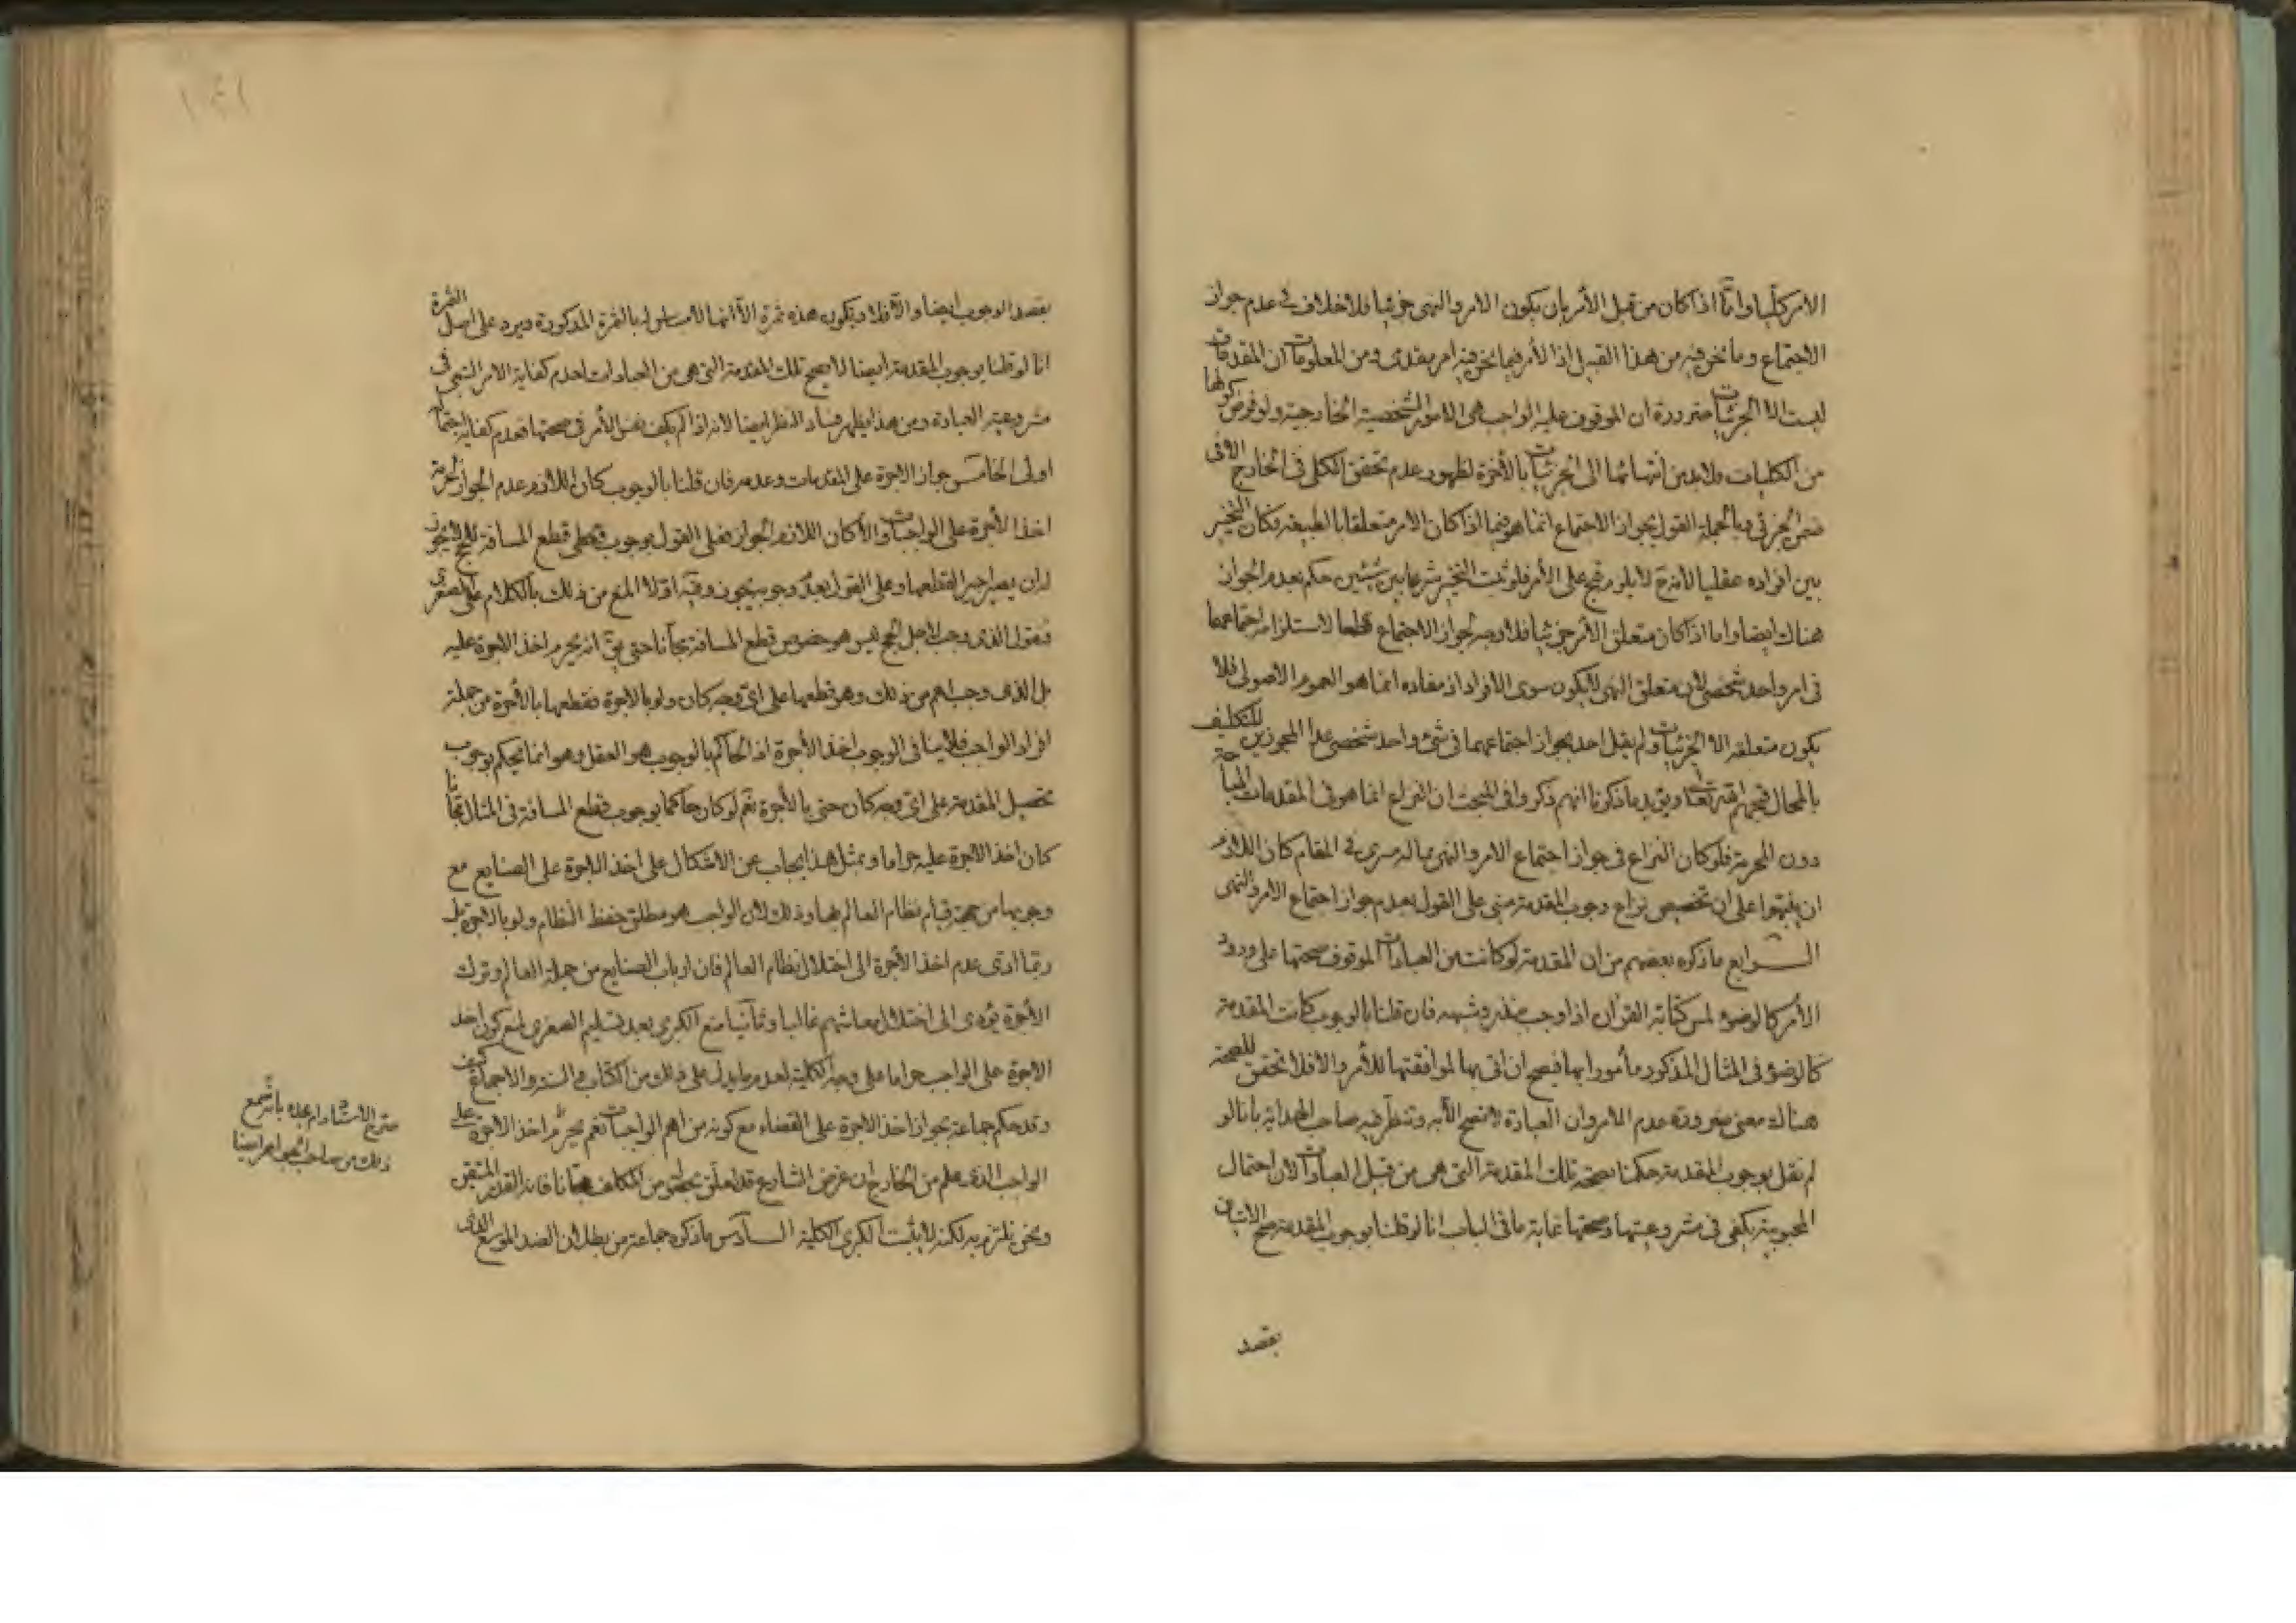 الامر كلّيا وامّا اذا كان من قبل الأمر بان يكون الامر والنهى جزئيا فلا خلاف فى عدم جواز
الاجتماع وما نحن فيه من هذا القبيل اذ الأمر فيما نحن فيه امر مقدمى ومن المعلومات ان المقدمات
ليست الا الجزئيات ضرورة ان الموقوف عليه الواجب هى الامور الشخصية الخارجية ولو فرض كونها
من الكليات فلا بد من انتهائها الى الجزئيات بالأخرة لظهور عدم تحقق الكلى فى الخارج الا فى
ضمن الجزئى وبالجملة القول بجواز الاجتماع انما هو فيما اذا كان الامر متعلقا بالطبيعة فكان التخيير
بين افراده عقليا لأمرجح على الأمر فلو ثبت التخيير شرعا بين شيئين حكم بعدم الجواز
هناك ايضا واما اذا كان متعلق الأمر جزئيا فلا وجه لجواز الاجتماع قطعا لاستلزامه اجتماعهما
فى امر واحد شخصى لأن متعلق النهى لا يكون سوى الافراد اذ مفاده انما هو العموم الاصولى فلا
يكون متعلقه الا الجزئيات ولم يقل احد بجواز اجتماعهما فى شىء واحد شخصى عدا المجوزين للتكليف
بالمحال ويؤيد ما ذكرنا انهم ذكروا فى المبحث ان النزاع انما هو فى المقدمات المباحة
دون المحرمة فلو كان النزاع فى جواز اجتماع الامر والنهى مما له مسرى فى المقام كان اللازم
ان ينبهوا على ان تخصيص نزاع وجوب المقدمة مبنى على القول بعدم جواز اجتماع الامر والنهى
الرابع ما ذكره بعضهم من ان المقدمة لو كانت من العبادات الموقوف صحتها على ورود
الأمر كالوضوء لمس كتابة القرآن اذا وجب بنذر وشبهه فان قلنا بالوجوب كانت المقدمة
كالوضوء فى المثال المذكور مأمورا بها فيصح ان اتى بها لموافقتها للأمر والا فلا تحقق للصحة
هناك معنى ضرورة عدم الامر وان العبادة لا تصح الا به وتنظر فيه صاحب الهداية بانا لو
لم نقل بوجوب المقدمة حكمنا بصحة تلك المقدمة التى هى من قبيل العبادات لان احتمال
المحبوبية يكفى فى مشروعيتها وصحتها غاية ما فى الباب انا لو قلنا بوجوب المقدمة صح الاتيان
بقصد
بقصد الوجوب ايضا والا فلا ويكون هذه ثمرة الا انها لا مساس لها بالثمرة المذكورة ويرد على اصل الثمرة
انا لو قلنا بوجوب المقدمة ايضا لا يصح تلك المقدمة التى هى من العبادات لعدم كفاية الامر التبعى فى
مشروعية العبادة ومن هذا يظهر فساد النظر ايضا لانه اذا لم يكف نفس الأمر فى صحتها فعدم كفاية احتماله
اولى الخامس جواز الاجرة على المقدمات وعدمه فان قلنا بالوجوب كان اللازم عدم الجواز لحرمة
اخذ الأجرة على الواجبات والا كان اللازم الجواز فعلى القول بوجوب قطع المسافة للحج لا يجوز
لان يصير اجيرا لقطعها وعلى القول بعدم وجوبه يجوز وفيه اولا المنع من ذلك بالكلام على الصغرى
فنقول الذى وجب لاجل الحج ليس هو خصوص قطع المسافة مجانا حتى يق انه يحرم اخذ الاجرة عليه
بل الذى وجب اعم من ذلك وهو قطعها على اىّ وجه كان ولو بالاجرة فقطعها بالأجرة من جملة
افراد الواجب فلا ينافى الوجوب اخذ الأجرة اذ الحاكم بالوجوب هو العقل وهو انما يحكم بوجوب
تحصيل المقدمة على اىّ وجه كان حتى بالأجرة نعم لو كان حاكما بوجوب قطع المسافة فى المثال مجّانا
كان اخذ الاجرة عليه حراما وبمثل هذا يجاب عن الاشكال على اخذ الاجرة على الصنايع مع
وجوبها من جهة قيام نظام العالم بها وذلك لان الواجب هو مطلق حفظ النظام ولو بالاجرة بل
ربّما ادّى عدم اخذ الأجرة الى اختلال نظام العالم فان ارباب الصنايع من جملة العالم وترك
الأجرة يؤدى الى اختلال معاشهم غالبا وثانيا منع الكبرى بعد تسليم الصغرى لمنع كون اخذ
الاجرة على الواجب حراما على وجه الكلية لعدم ما يدل على ذلك من الكتاب والسنة والاجماع كيف
وقد حكم جماعة بجواز اخذ الاجرة على القضاء مع كونه من اهم الواجبات نعم يحرم اخذ الاجرة على
الواجب الذى علم من الخارج ان غرض الشارع قد تعلق من المكلف مجانا فانه القدر المتيقن
ونحن نلتزم به لكنه لا يثبت الكبرى الكلية السادس ما ذكره جماعة من بطلان الضد الموسع الذى
صرح الاستاد دام مجده بانه سمع
ذلك من صاحب الجواهر ايضا